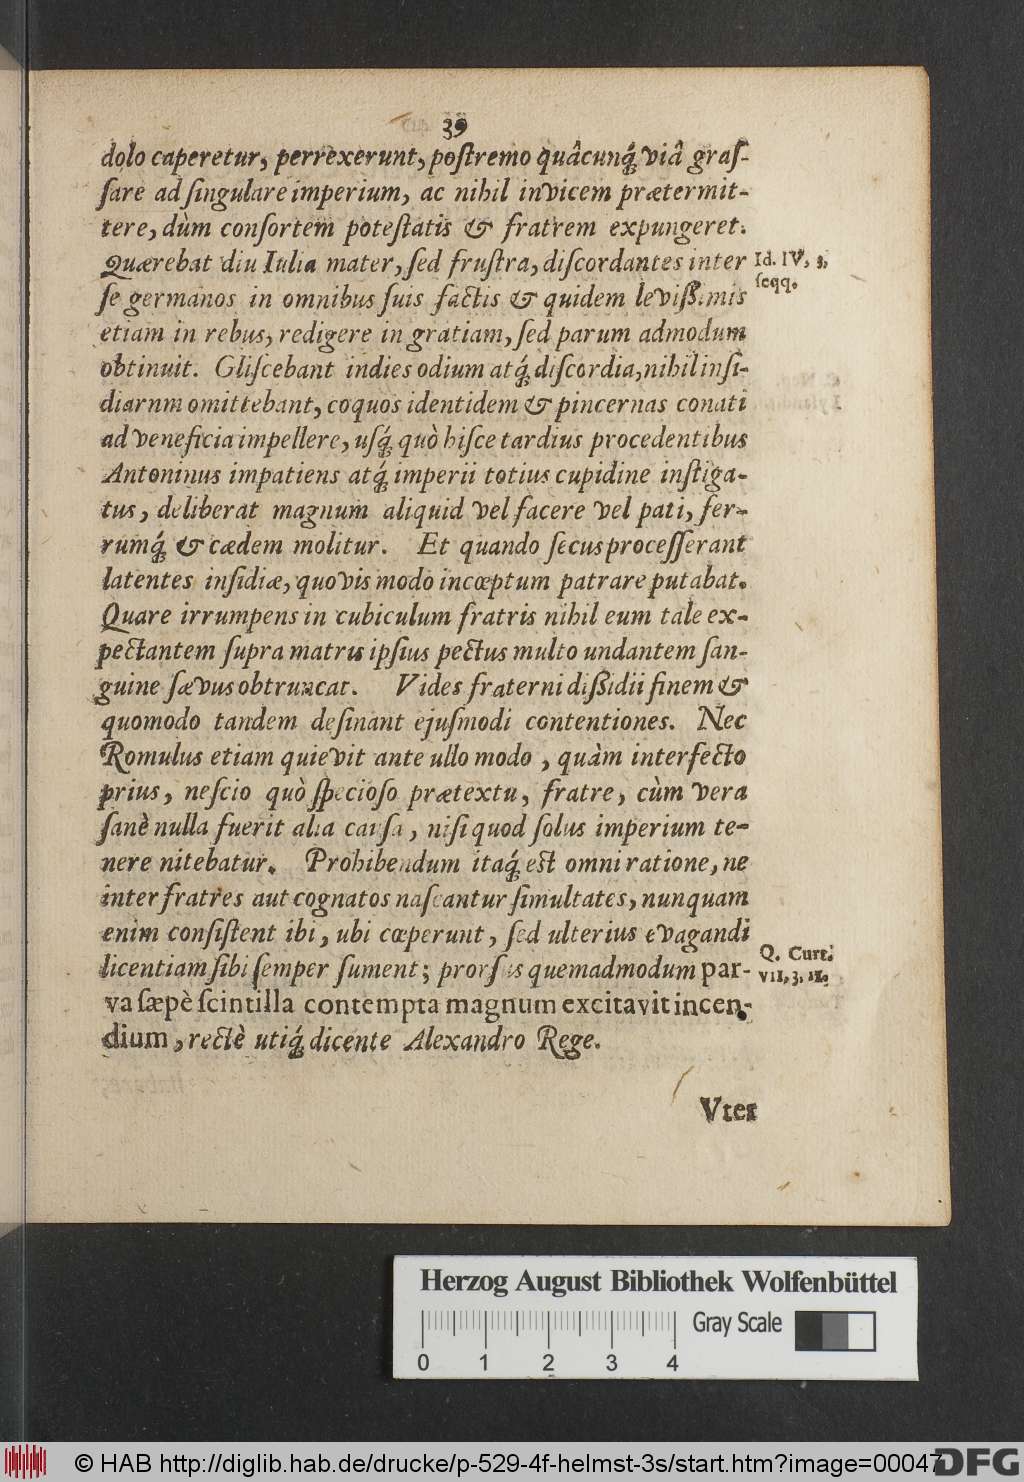 39
dolo caperetur, perrexerunt, poſtremo quâcunq́; viâ graſ-
ſare ad ſingulare imperium, ac nihil invicem prætermit-
tere, dùm conſortem poteſtatis & fratrem expungeret.
Quærebat diu Iulia mater, ſed fruſtra, diſcordantes inter
Id. IV, 3,
ſeqq.
ſe germanos in omnibus ſuis factis & quidem leviſſimis
etiam in rebus, redigere in gratiam, ſed parum admodum
obtinuit. Gliſcebant indies odium atq́; diſcordia, nihil inſi-
diarnm omittebant, coquos identidem & pincernas conati
ad veneficia impellere, uſq́; quò hiſce tardius procedentibus
Antoninus impatiens atq́; imperii totius cupidine inſtiga-
tus, deliberat magnum aliquid vel facere vel pati, fer-
rumq́; & cædem molitur. Et quando ſecus proceſſerant
latentes inſidiæ, quovis modo incœptum patrare putabat.
Quare irrumpens in cubiculum fratris nihil eum tale ex-
pectantem ſupra matris ipſius pectus multo undantem ſan-
guine ſævus obtruncat. Vides fraterni diſſidii finem &
quomodo tandem deſinant ejuſmodi contentiones. Nec
Romulus etiam quievit ante ullo modo, quàm interfecto
prius, neſcio quò ſpecioſo prætextu, fratre, cùm vera
ſanè nulla fuerit alia cauſa, niſi quod ſolus imperium te-
nere nitebatur. Prohibendum itaq́; eſt omni ratione, ne
inter fratres aut cognatos naſcantur ſimultates, nunquam
enim conſiſtent ibi, ubi cœperunt, ſed ulterius evagandi
licentiam ſibi ſemper ſument; prorſus quemadmodum par-
Q. Curt.
VII, 3, 11.
va ſæpè ſcintilla contempta magnum excitavit incen-
dium, rectè utiq́; dicente Alexandro Rege.
Vter
Herzog August Bibliothek Wolfenbüttel
Gray Scale
0 1 2 3 4
© HAB http://diglib.hab.de/drucke/p-529-4f-helmst-3s/start.htm?image=00047
DFG